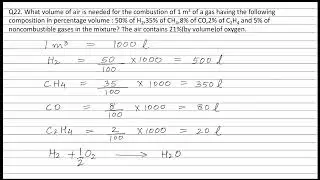 Q22. What volume of air is needed for the combustion of 1 m³ of a gas having the following
composition in percentage volume : 50% of H₂,35% of CH₄,8% of CO,2% of C₂H₄ and 5% of
noncombustible gases in the mixture? The air contains 21%(by volume)of oxygen.
1 m³ = 1000 l
H₂ = 50/100 × 1000 = 500 l
CH₄ = 35/100 × 1000 = 350 l
CO = 8/100 × 1000 = 80 l
C₂H₄ = 2/100 × 1000 = 20 l
H₂ + 1/2 O₂ → H₂O